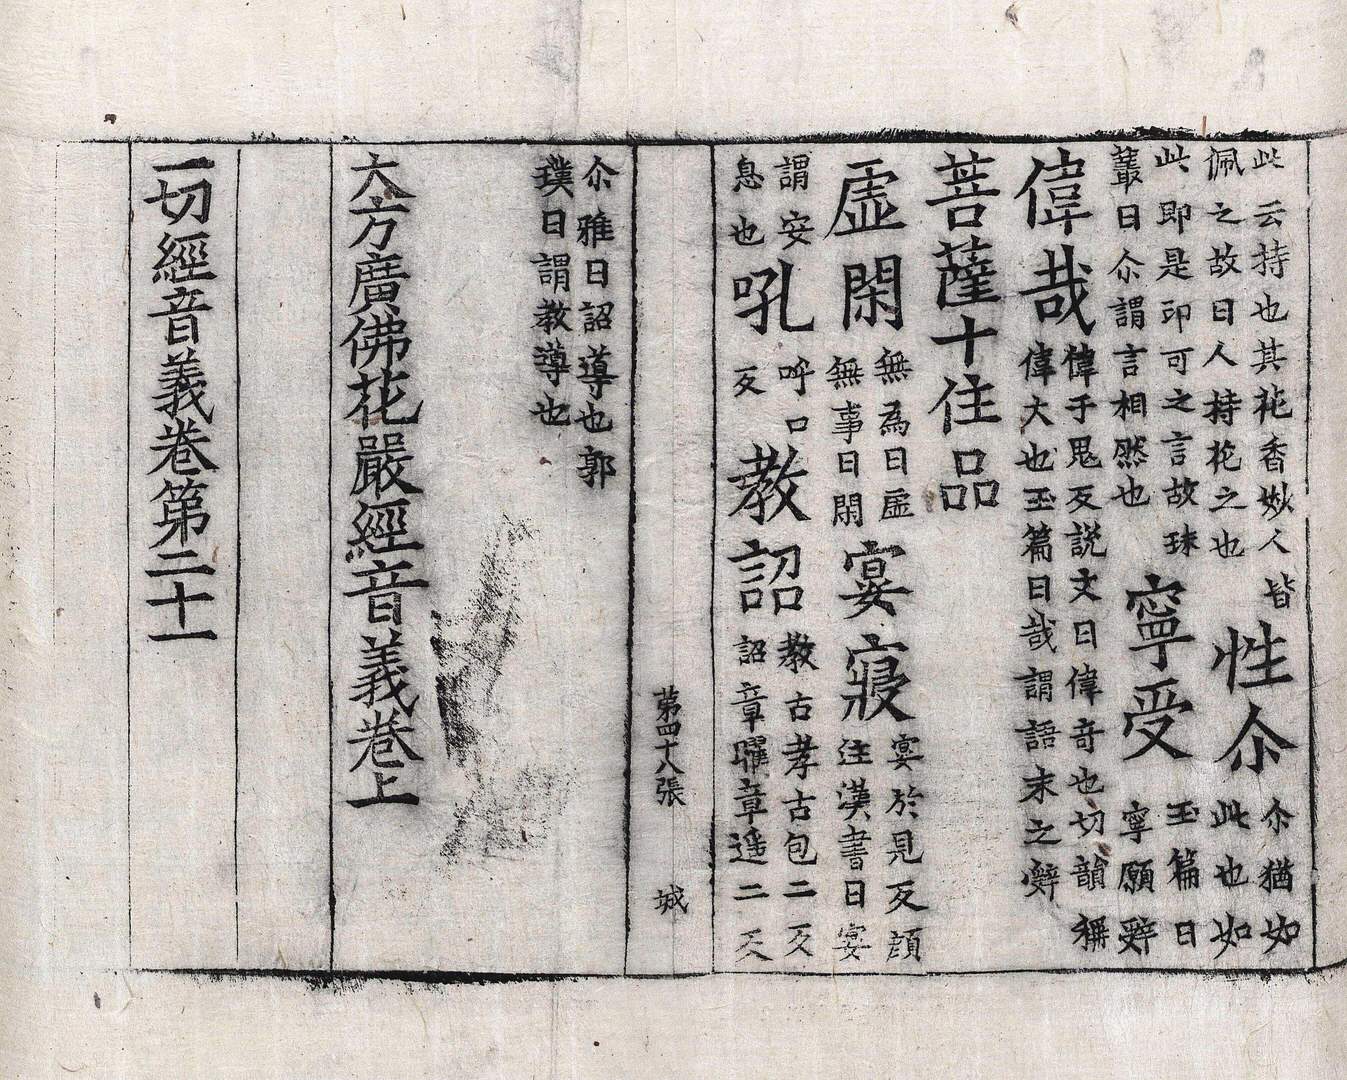 此云持也其花香妙人皆
佩之故曰人持花之也
性尒
尒猶如
此也如
此即是印可之言故珠
叢曰尒謂言相然也
寧受
玉篇曰
寧願辞
偉哉
偉于鬼反說文曰偉奇也切韻稱
偉大也玉篇曰哉謂語末之辤
菩薩十住品
虛閑
無為曰虛
無事曰閑
宴寢
宴於見反顔
注漢書曰宴
謂安
息也
吼
呼口
反
教詔
教古孝古包二反
詔章曜章遥二反
第四十八張 城
尒雅曰詔導也郭
璞曰謂教導也
大方廣佛花嚴經音義卷上
一切經音義卷第二十一